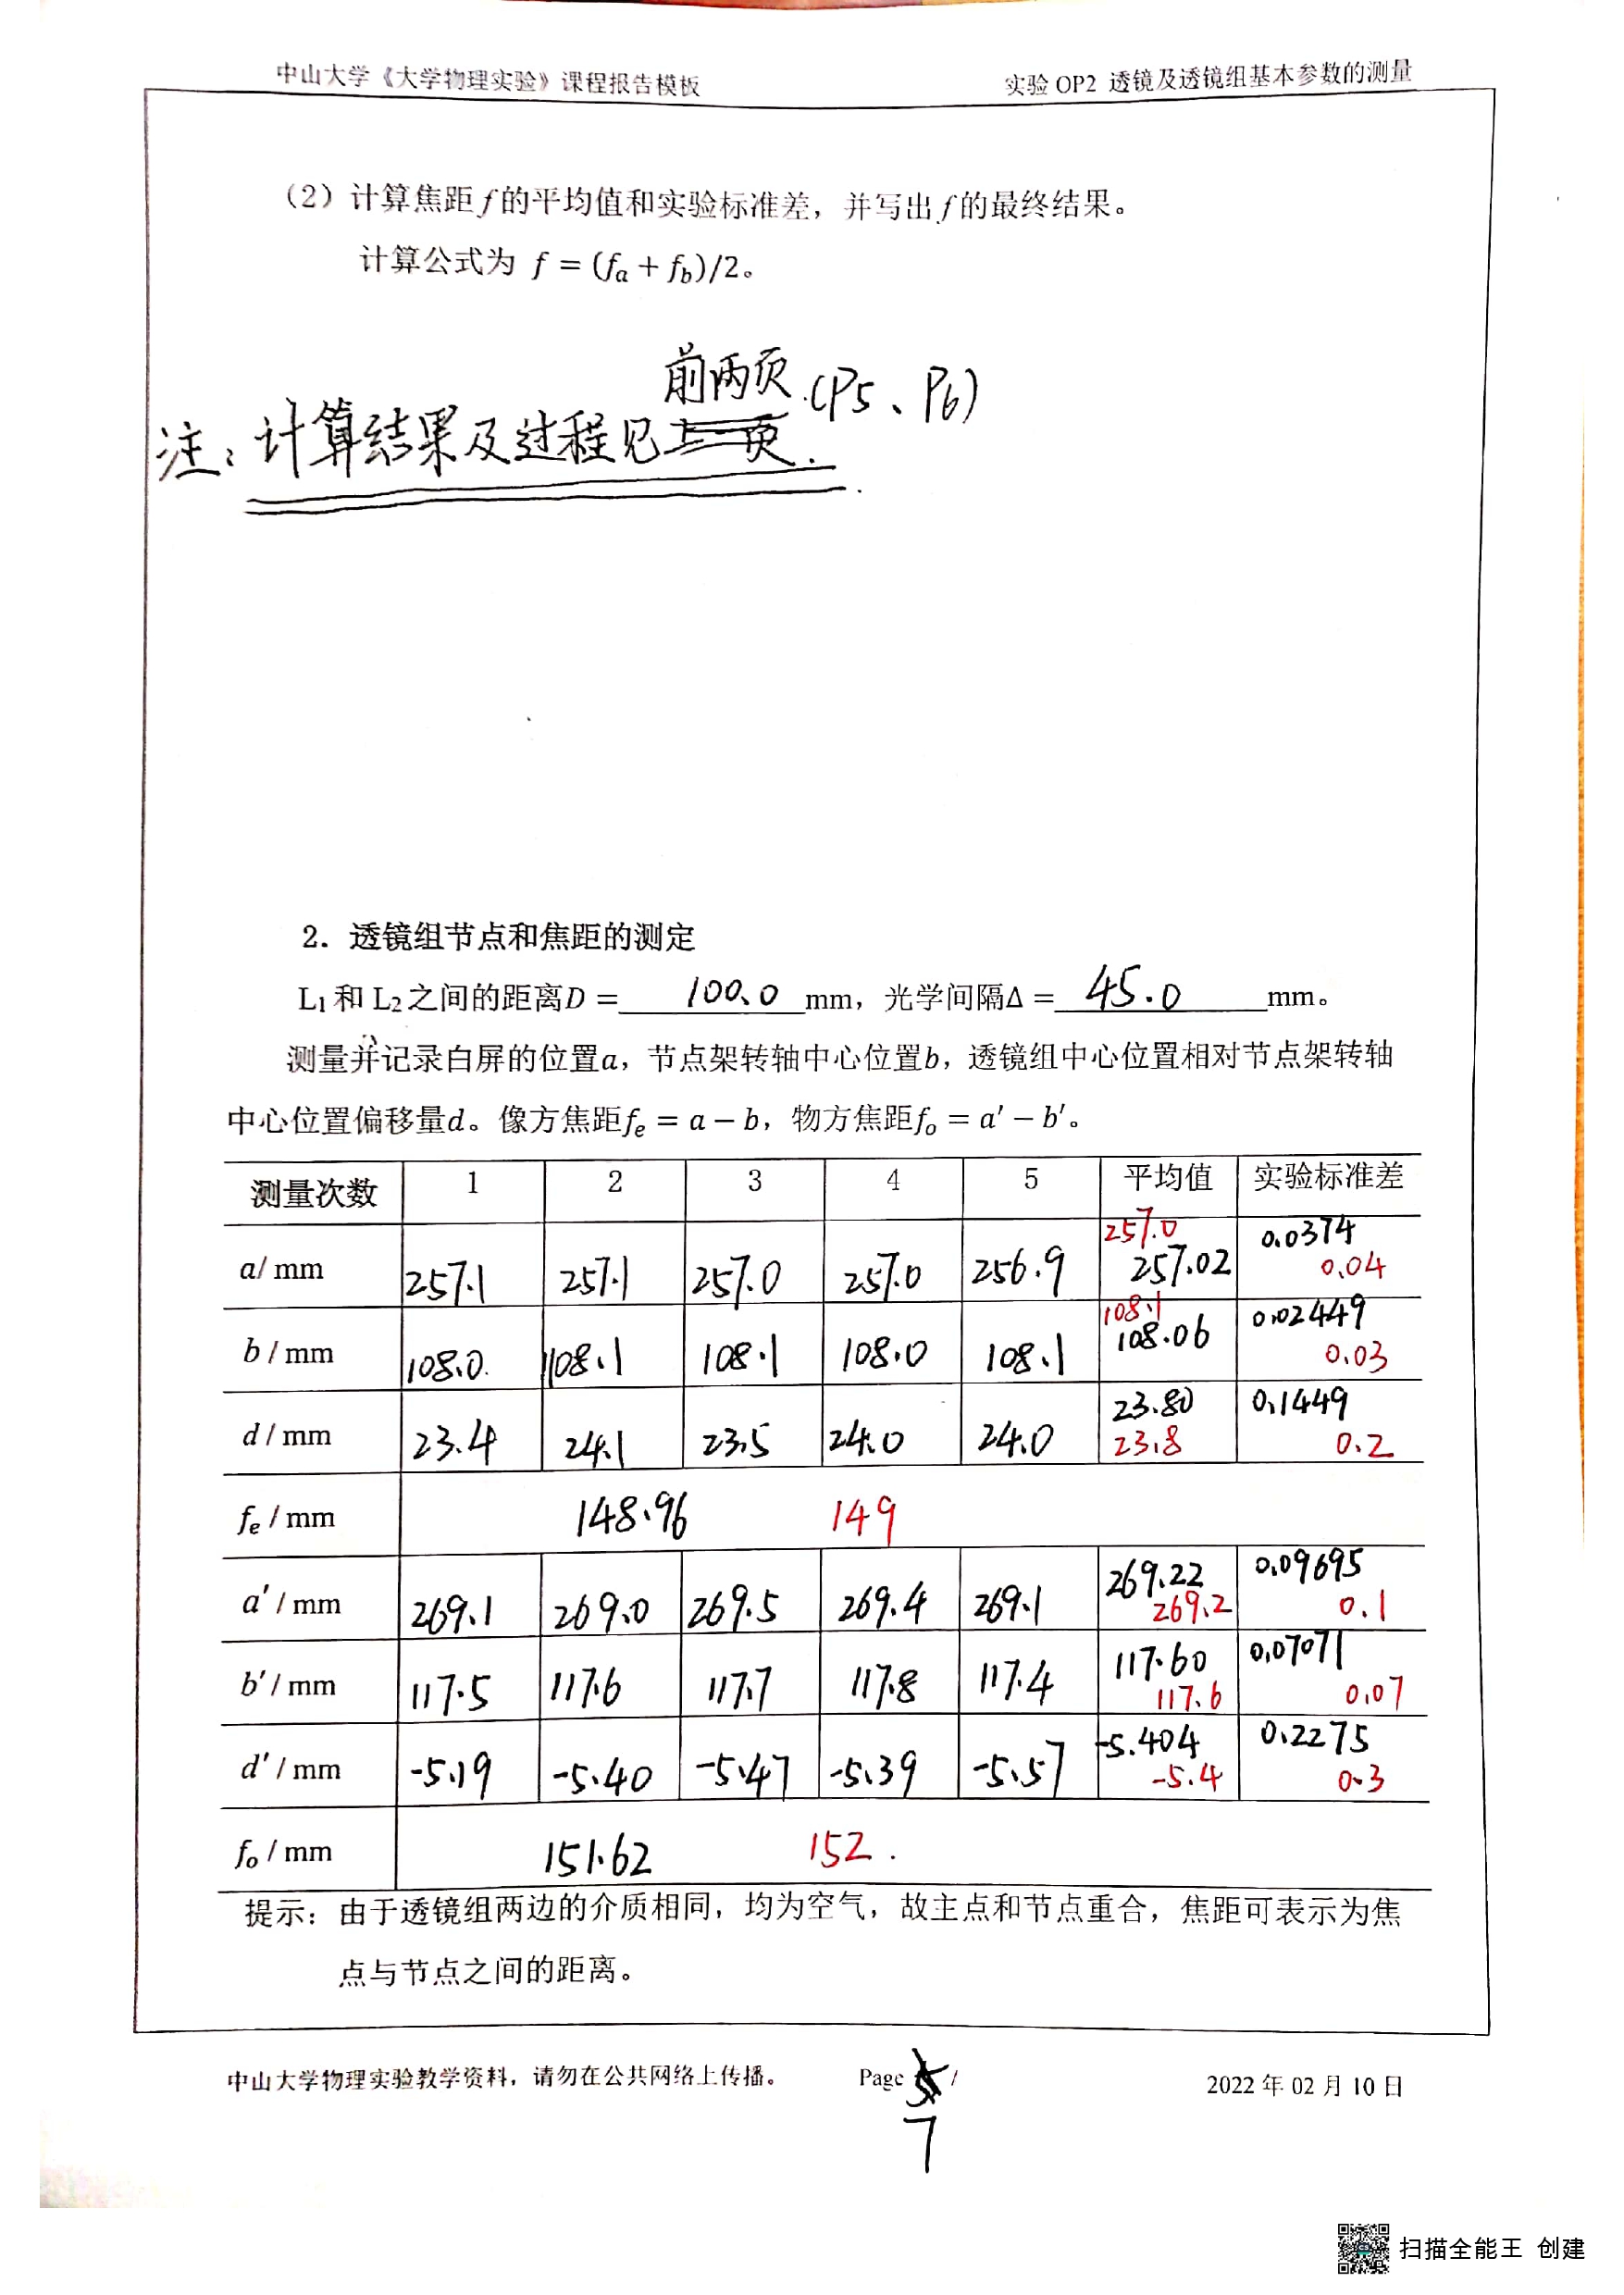 中山大学《大学物理实验》课程报告模板 实验 OP2 透镜及透镜组基本参数的测量
（2）计算焦距f的平均值和实验标准差，并写出f的最终结果。
计算公式为 f = (fa + fb)/2。
前两页 (P5、P6)
注：计算结果及过程见上一页.
2．透镜组节点和焦距的测定
L1和 L2之间的距离D = 100.0 mm，光学间隔Δ = 45.0 mm。
测量并记录白屏的位置a，节点架转轴中心位置b，透镜组中心位置相对节点架转轴
中心位置偏移量d。像方焦距fe = a − b，物方焦距fo = a′ − b′。
测量次数 1 2 3 4 5 平均值 实验标准差
a/ mm 257.1 257.1 257.0 257.0 256.9 257.0 257.02 0.0374 0.04
b / mm 108.0 108.1 108.1 108.0 108.1 108.1 108.06 0.02449 0.03
d / mm 23.4 24.1 23.5 24.0 24.0 23.80 23.8 0.1449 0.2
fe / mm 148.96 149
a′ / mm 269.1 269.0 269.5 269.4 269.1 269.22 269.2 0.09695 0.1
b′ / mm 117.5 117.6 117.7 117.8 117.4 117.60 117.6 0.07071 0.07
d′ / mm -5.19 -5.40 -5.47 -5.39 -5.57 -5.404 -5.4 0.2275 0.3
fo / mm 151.62 152.
提示：由于透镜组两边的介质相同，均为空气，故主点和节点重合，焦距可表示为焦
点与节点之间的距离。
中山大学物理实验教学资料，请勿在公共网络上传播。 Page 5 / 2022 年 02 月 10 日
7
扫描全能王 创建